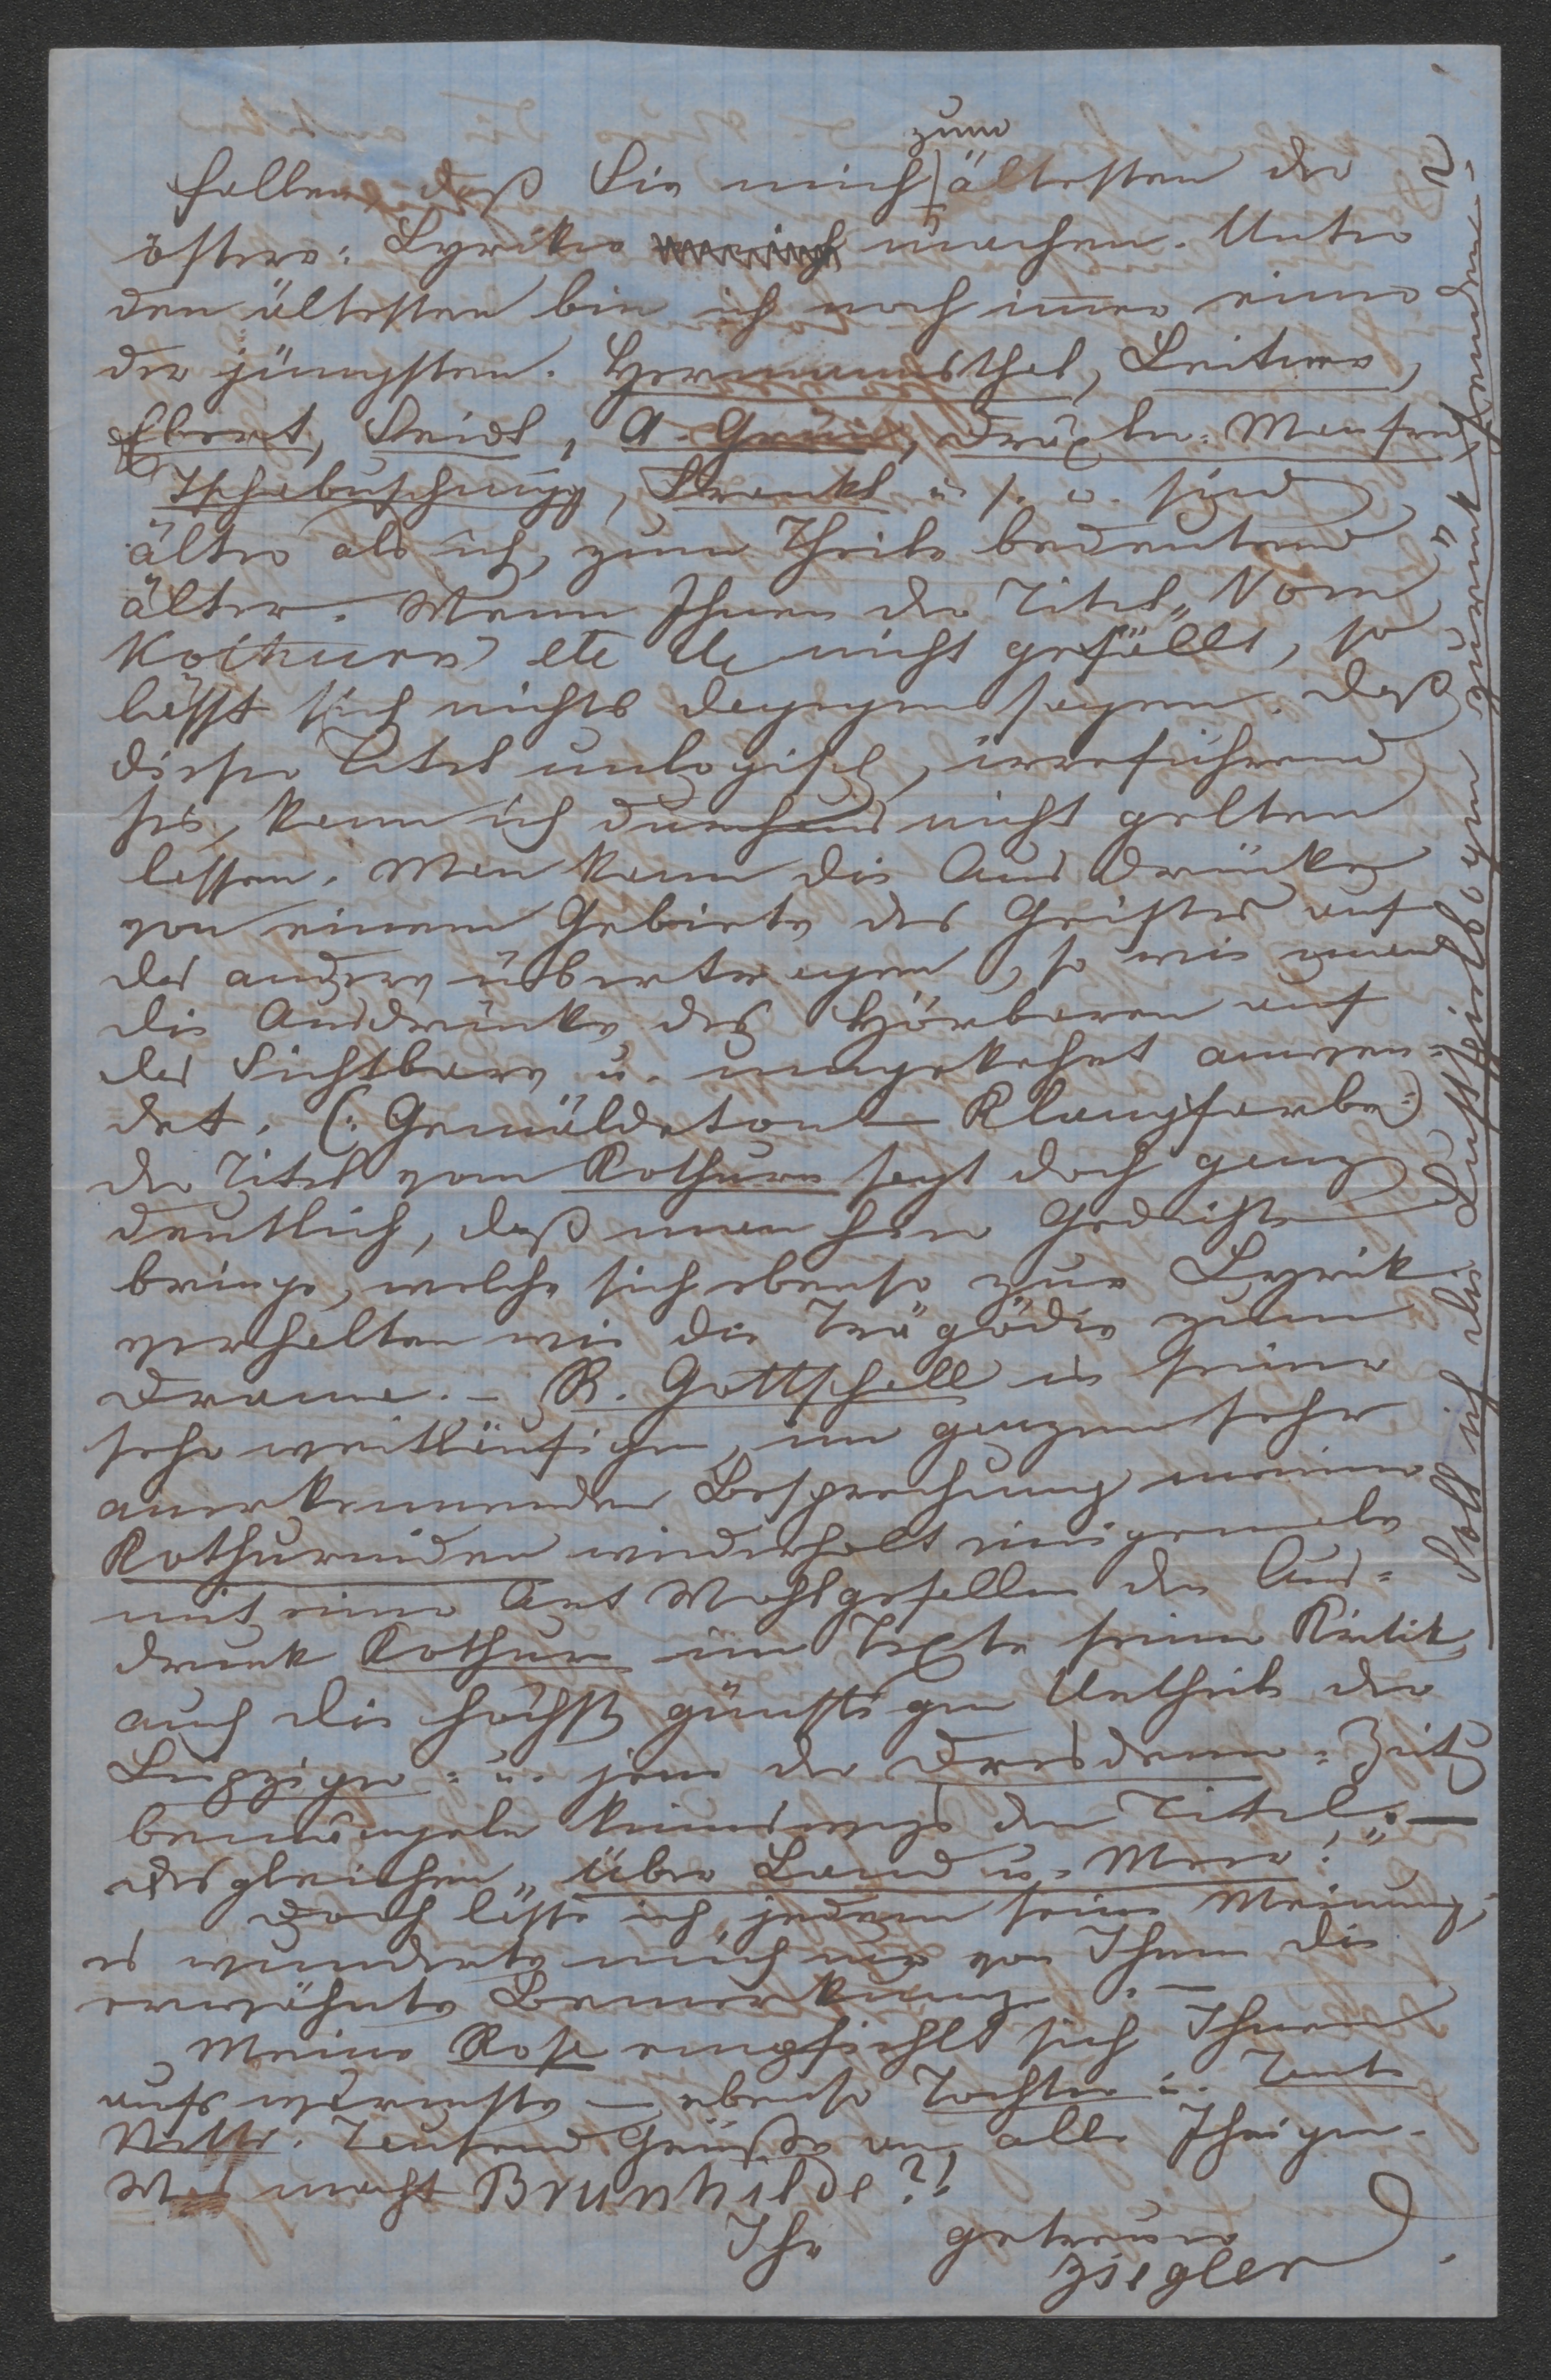 zum
fallen daß Sie mich ältesten der
österr: Lyriker machen. Unter
den ältesten bin ich noch immer einer
der jüngsten. Hermannsthal, Leitner,
Ebert, Seidl, A. Grün, Dräxler-Manfred
Tschabuschnigg, Frankl u. s. w. sind
älter als ich, zum Theile bedeutend
älter. Wenn Ihnen der Titel „Vom
Kothurn etc etc nicht gefällt, so
lässt sich nichts dagegen sagen. Daß
dieser Titel unlogisch, irreführend
sei, kann ich durchaus nicht gelten
lassen. Man kann die Ausdrücke
von einem Gebiete des Geistes auf
das andere übertragen, so wie man
die Ausdrücke des Hörbaren auf
das Sichtbare u. umgekehrt anwen-
det. (: Gemäldeton – Klangfarbe :)
Der Titel vom Kothurn sagt doch ganz
deutlich, daß man hier Gedichte
bringe, welche sich ebenso zur Lyrik
verhalten wie die Tragödie zum
Drama. – R. Gottschall in seiner
sehr weitläufigen, im ganzen sehr
anerkennenden Besprechung meiner
Kothurniden wiederholt einigemale
mit einer Art Wohlgefallen den Aus=
druck Kothurn im Texte seiner Kritik,
auch die höchst günstigen Urtheile der
Leipziger = u. jene der Dresdener = Zeitg
bemängeln keineswegs den Titel. —
desgleichen „Über Land u. Meer!"
Doch lasse ich jedem seine Meinung,
es wunderte mich nur von Ihnen die
erwähnte Bemerkung. —
Meine Rosa empfiehlt sich Ihnen
aufs wärmste — ebenso Tochter u. Tante
Tausend Grüße an alle Ihrigen.
Was macht Brunhilde?!
Ihr getreuer
Ziegler
Soll ich die Lustspielbogen zurücksenden?